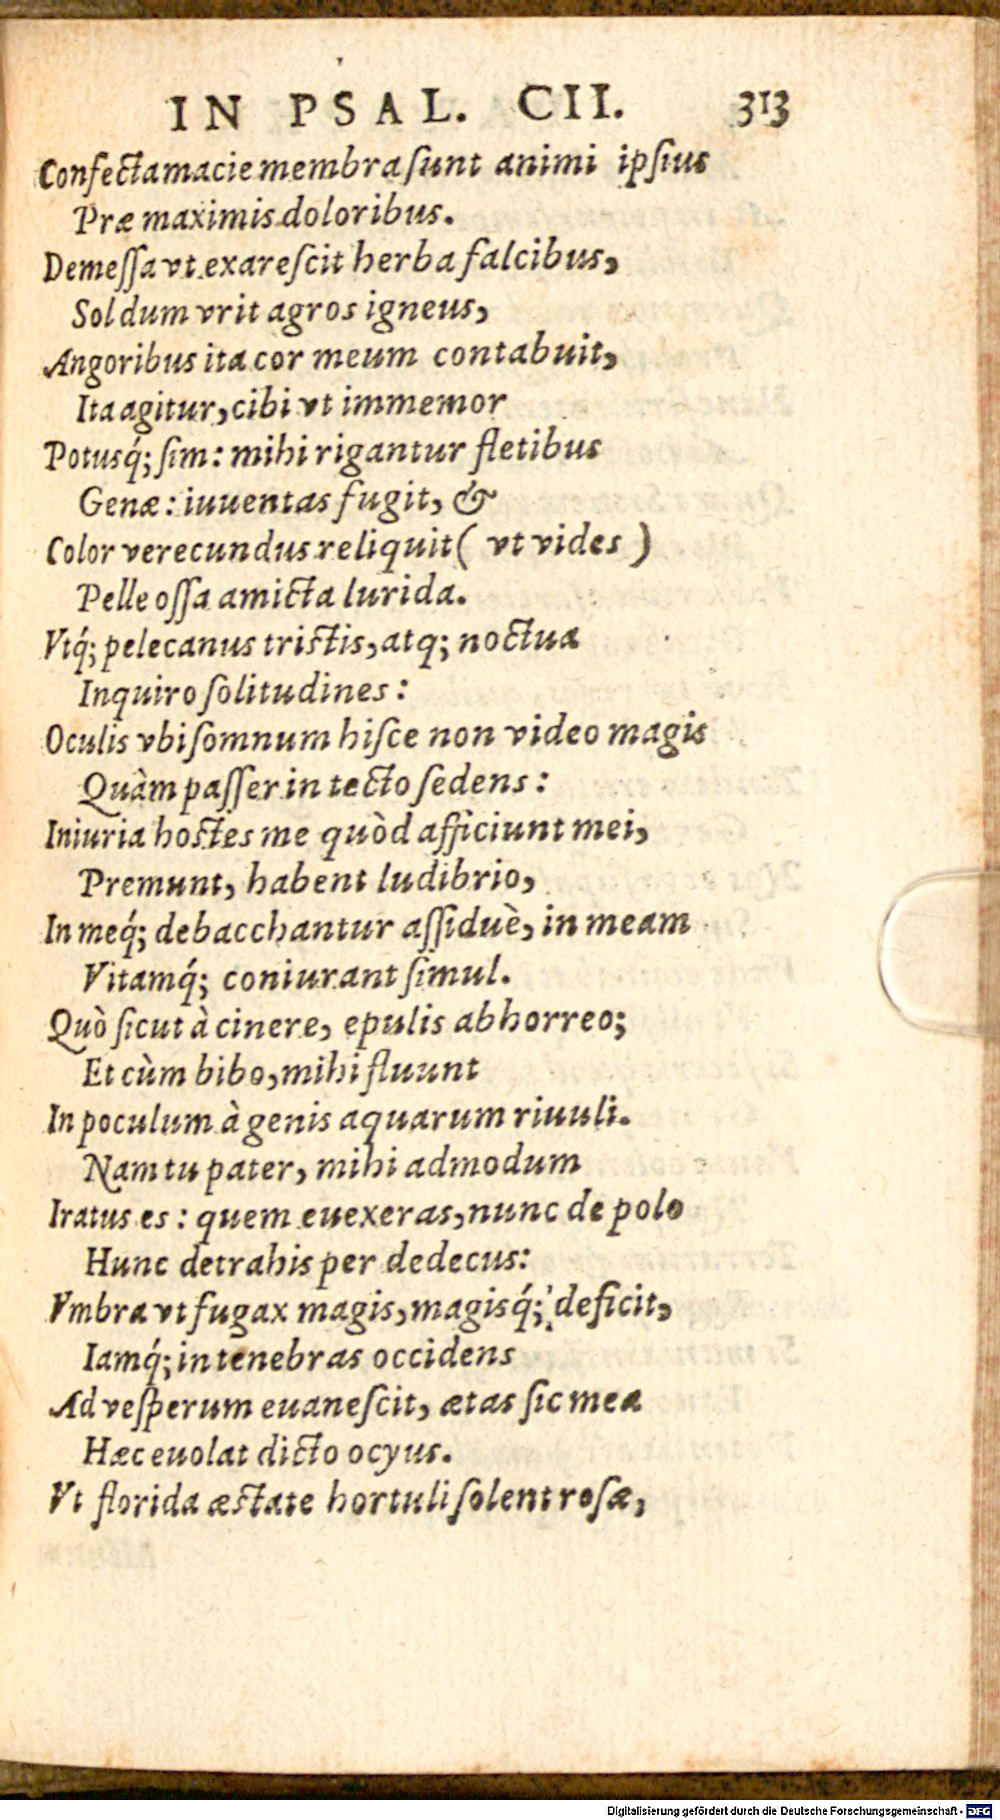 IN PSAL. CII. 313
Confecta macie membra ſunt animi ipſius
Præ maximis doloribus.
Demeſſa vt exareſcit herba falcibus,
Sol dum vrit agros igneus,
Angoribus ita cor meum contabuit,
Ita agitur, cibi vt immemor
Potusq́; ſim: mihi rigantur fletibus
Genæ: iuuentas fugit, &
Color verecundus reliquit ( vt vides )
Pelle oſſa amicta lurida.
Vtq́; pelecanus triſtis, atq; noctua
Inquiro ſolitudines:
Oculis vbi ſomnum hiſce non video magis
Quàm paſſer in tecto ſedens:
Iniuria hoſtes me quòd afficiunt mei,
Premunt, habent ludibrio,
In meq́; debacchantur aſſiduè, in meam
Vitamq́; coniurant ſimul.
Quò ſicut à cinere, epulis abhorreo;
Et cùm bibo, mihi fluunt
In poculum à genis aquarum riuuli.
Nam tu pater, mihi admodum
Iratus es: quem euexeras, nunc de polo
Hunc detrahis per dedecus:
Vmbra vt fugax magis, magisq́; deficit,
Iamq́; in tenebras occidens
Ad veſperum euaneſcit, ætas ſic mea
Hæc euolat dicto ocyus.
Vt florida æſtate hortuli ſolent roſæ,
Digitalisierung gefördert durch die Deutsche Forschungsgemeinschaft - DFG